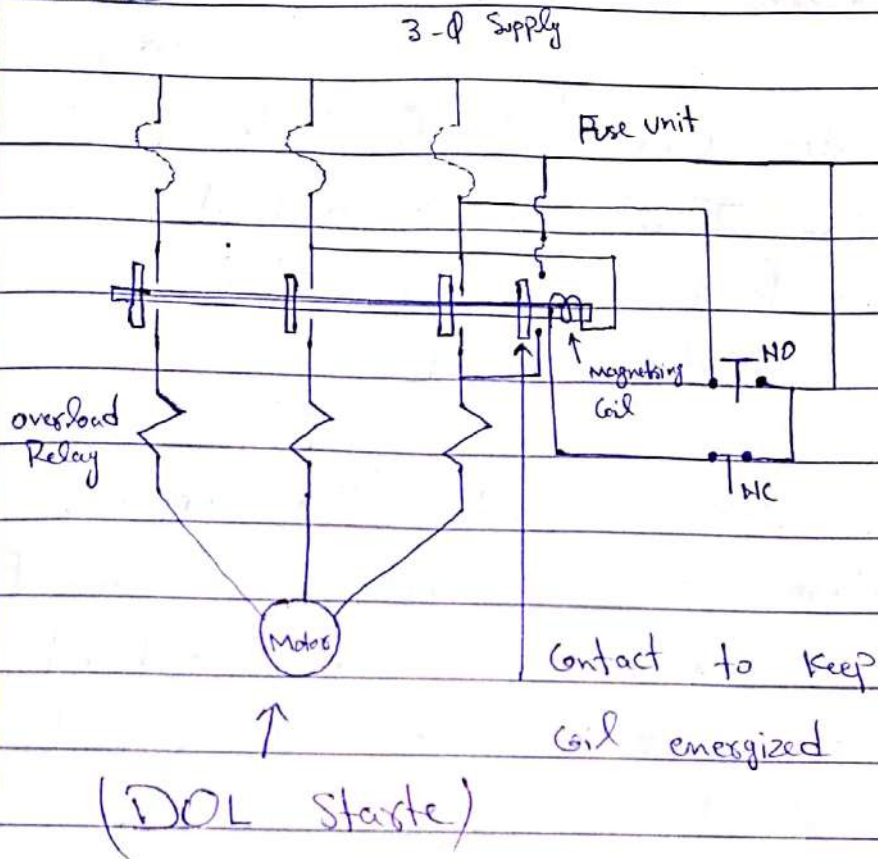 3-Φ Supply
Fuse unit
NO
magnetising
Coil
overload
Relay
NC
Motor
Contact to Keep
Coil energized
(DOL Starte)